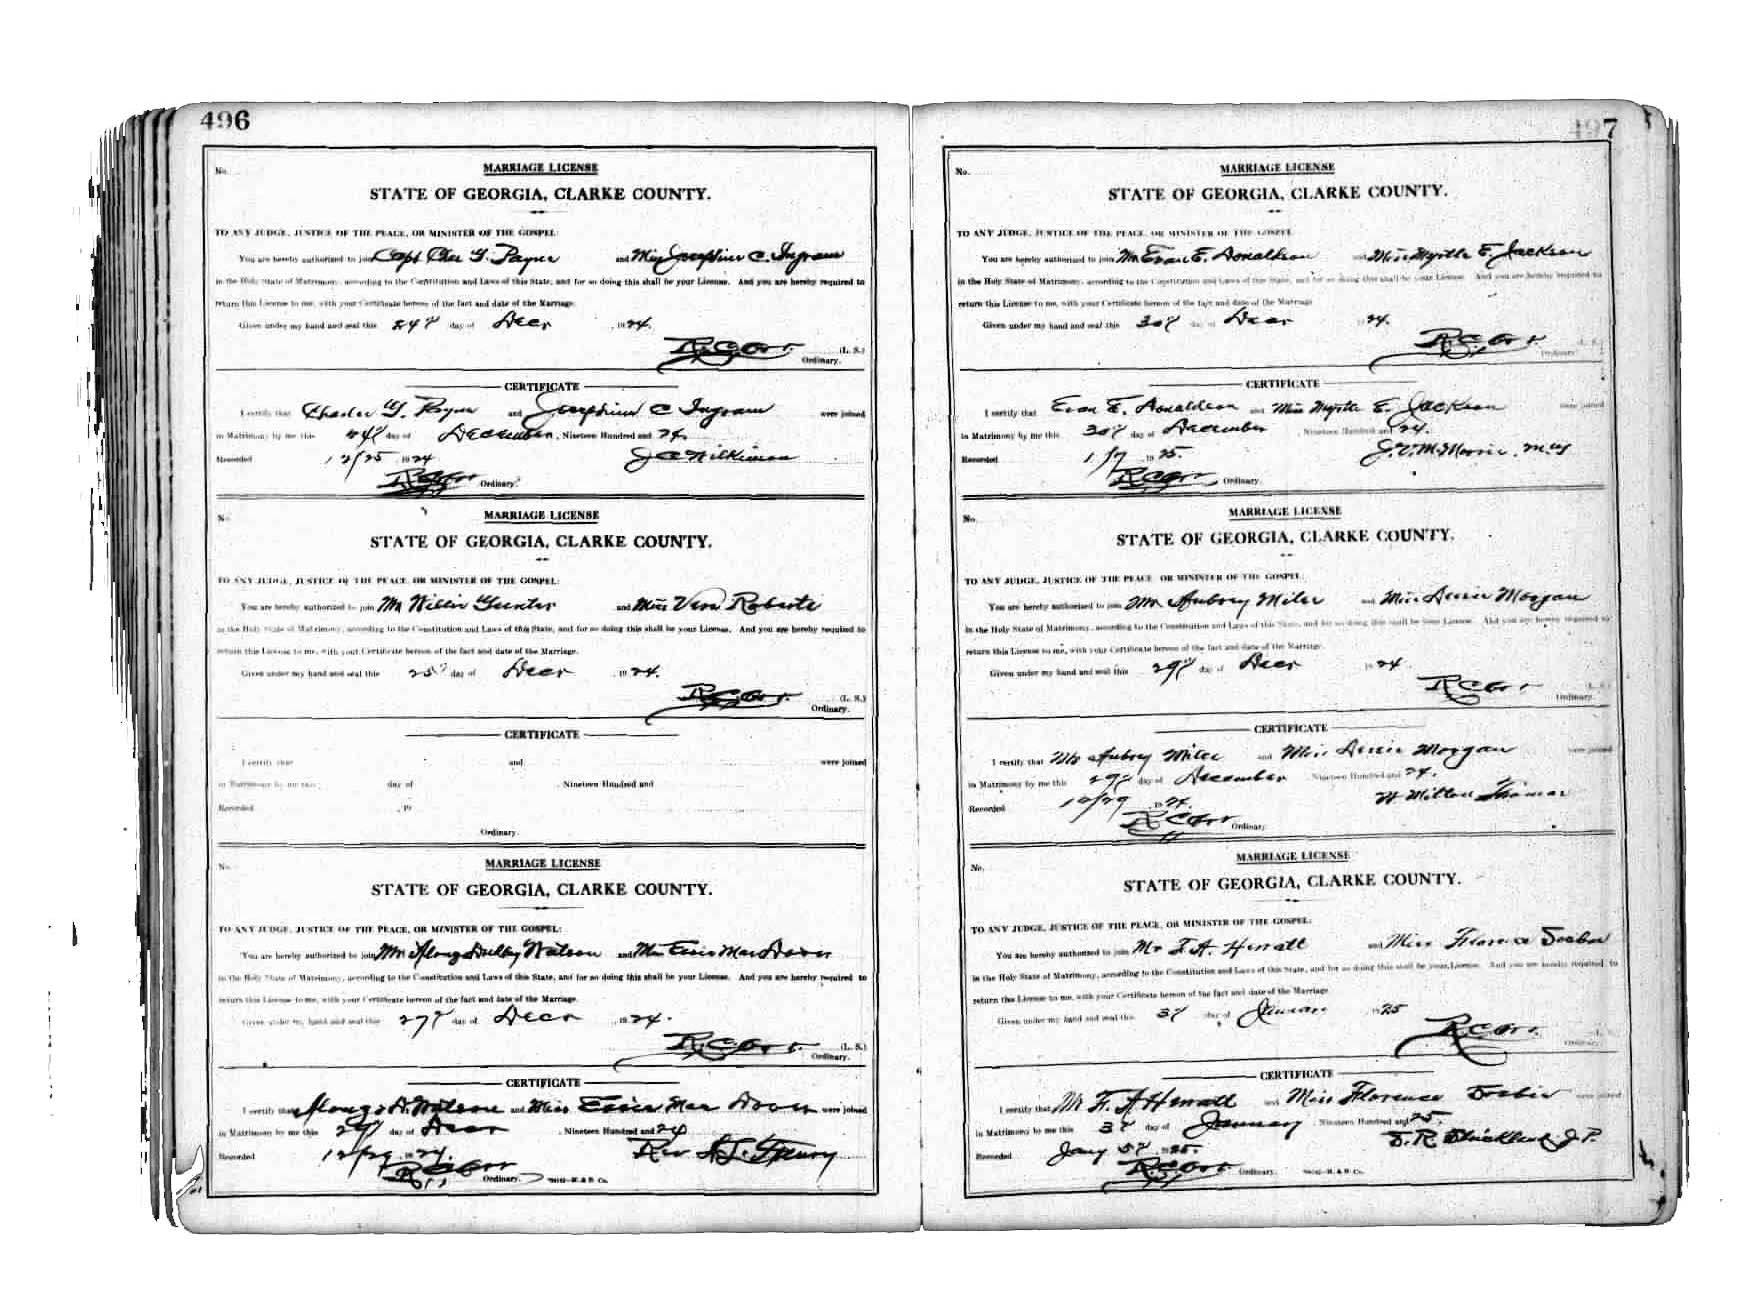 496
No.
MARRIAGE LICENSE
STATE OF GEORGIA, CLARKE COUNTY.
TO ANY JUDGE, JUSTICE OF THE PEACE, OR MINISTER OF THE GOSPEL:
You are hereby authorized to join Capt Chas G. Payne and Miss Josephine C. Ingram
in the Holy State of Matrimony, according to the Constitution and Laws of this State, and for so doing this shall be your License. And you are hereby required to
return this License to me, with your Certificate hereon of the fact and date of the Marriage.
Given under my hand and seal this 24" day of Decr , 1924.
R.C. Orr (L. S.)
Ordinary.
CERTIFICATE
I certify that Charles G. Payne and Josephine C Ingram were joined
in Matrimony by me this 24" day of December , Nineteen Hundred and 24.
Recorded 12/25 1924 J C Wilkinson
R C Orr Ordinary.
No.
MARRIAGE LICENSE
STATE OF GEORGIA, CLARKE COUNTY.
TO ANY JUDGE, JUSTICE OF THE PEACE, OR MINISTER OF THE GOSPEL:
You are hereby authorized to join Mr Willie Gunter and Miss Vera Roberts
in the Holy State of Matrimony, according to the Constitution and Laws of this State, and for so doing this shall be your License. And you are hereby required to
return this License to me, with your Certificate hereon of the fact and date of the Marriage.
Given under my hand and seal this 25" day of Decr , 1924.
R.C. Orr. (L. S.)
Ordinary.
CERTIFICATE
I certify that and were joined
in Matrimony by me this day of , Nineteen Hundred and
Recorded , 19
Ordinary.
No.
MARRIAGE LICENSE
STATE OF GEORGIA, CLARKE COUNTY.
TO ANY JUDGE, JUSTICE OF THE PEACE, OR MINISTER OF THE GOSPEL:
You are hereby authorized to join Mr Watson and Miss Essie Mae
in the Holy State of Matrimony, according to the Constitution and Laws of this State, and for so doing this shall be your License. And you are hereby required to
return this License to me, with your Certificate hereon of the fact and date of the Marriage.
Given under my hand and seal this 27" day of Decr , 1924.
R.C. Orr. (L. S.)
Ordinary.
CERTIFICATE
I certify that D. Watson and Miss Essie Mae were joined
in Matrimony by me this day of Decr , Nineteen Hundred and 24
Recorded 12/29 1924. Rev
R C Orr Ordinary.
497
No.
MARRIAGE LICENSE
STATE OF GEORGIA, CLARKE COUNTY.
TO ANY JUDGE, JUSTICE OF THE PEACE, OR MINISTER OF THE GOSPEL
You are hereby authorized to join Mr Evan E. Donaldson and Miss Myrtle E. Jackson
in the Holy State of Matrimony, according to the Constitution and Laws of this State, and for so doing this shall be your License. And you are hereby required to
return this License to me, with your Certificate hereon of the fact and date of the Marriage
Given under my hand and seal this 30" day of Decr 1924.
R.C. Orr (L. S.)
Ordinary.
CERTIFICATE
I certify that Evan E. Donaldson and Miss Myrtle E. Jackson were joined
in Matrimony by me this 30" day of December , Nineteen Hundred and 24.
Recorded 1/7 1925.
R C Orr Ordinary.
No.
MARRIAGE LICENSE
STATE OF GEORGIA, CLARKE COUNTY.
TO ANY JUDGE, JUSTICE OF THE PEACE OR MINISTER OF THE GOSPEL:
You are hereby authorized to join Mr Aubrey and Miss Morgan
in the Holy State of Matrimony, according to the Constitution and Laws of this State, and for so doing this shall be your License. And you are hereby required to
return this License to me, with your Certificate hereon of the fact and date of the Marriage.
Given under my hand and seal this 29" day of Decr 1924.
R C Orr (L. S.)
Ordinary.
CERTIFICATE
I certify that Mr Aubrey and Miss Morgan were joined
in Matrimony by me this 29" day of December Nineteen Hundred and 24.
Recorded 12/29 1924. H Milton Thomas
R C Orr Ordinary.
No.
MARRIAGE LICENSE
STATE OF GEORGIA, CLARKE COUNTY.
TO ANY JUDGE, JUSTICE OF THE PEACE, OR MINISTER OF THE GOSPEL:
You are hereby authorized to join Mr F. A. and Miss Florence
in the Holy State of Matrimony, according to the Constitution and Laws of this State, and for so doing this shall be your License. And you are hereby required to
return this License to me, with your Certificate hereon of the fact and date of the Marriage
Given under my hand and seal this 3" day of January 1925
R C Orr. (L. S.)
Ordinary.
CERTIFICATE
I certify that Mr F. A and Miss Florence were joined
in Matrimony by me this 3" day of January , Nineteen Hundred and 25.
Recorded Jany 5" 1925. S. R. Strickland J. P.
R. C Orr. Ordinary.